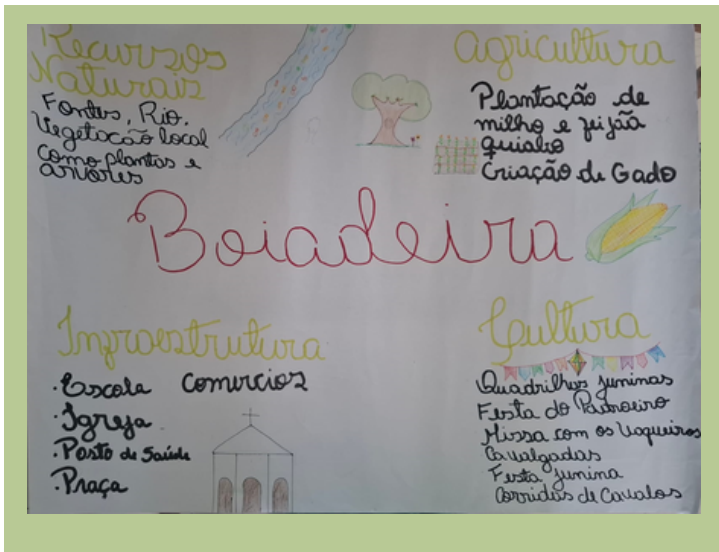 Recursos
Naturais
Fontes, Rio.
Vegetacão local
como plantas e
arvores
Agricultura
Plantação de
milho e feijão
quiabo
Criação de Gado
Boiadeira
Infraestrutura
·Escola comercios
·Igreja
·Posto de Saúde
·Praça
Cultura
Quadrilhas juninas
Festa do Padroeiro
Missa com os Vaqueiros
Cavalgadas
Festa junina
Corridas de Cavalos